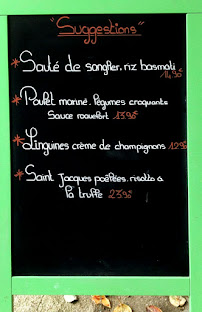 "Suggestions"
* Sauté de sanglier, riz basmati
14,90
* Poulet mariné, légumes croquants
Sauce roquefort 13.90
* Linguines crème de champignons 12.90
* Saint Jacques poêlées, risotto à
la truffe 23.90